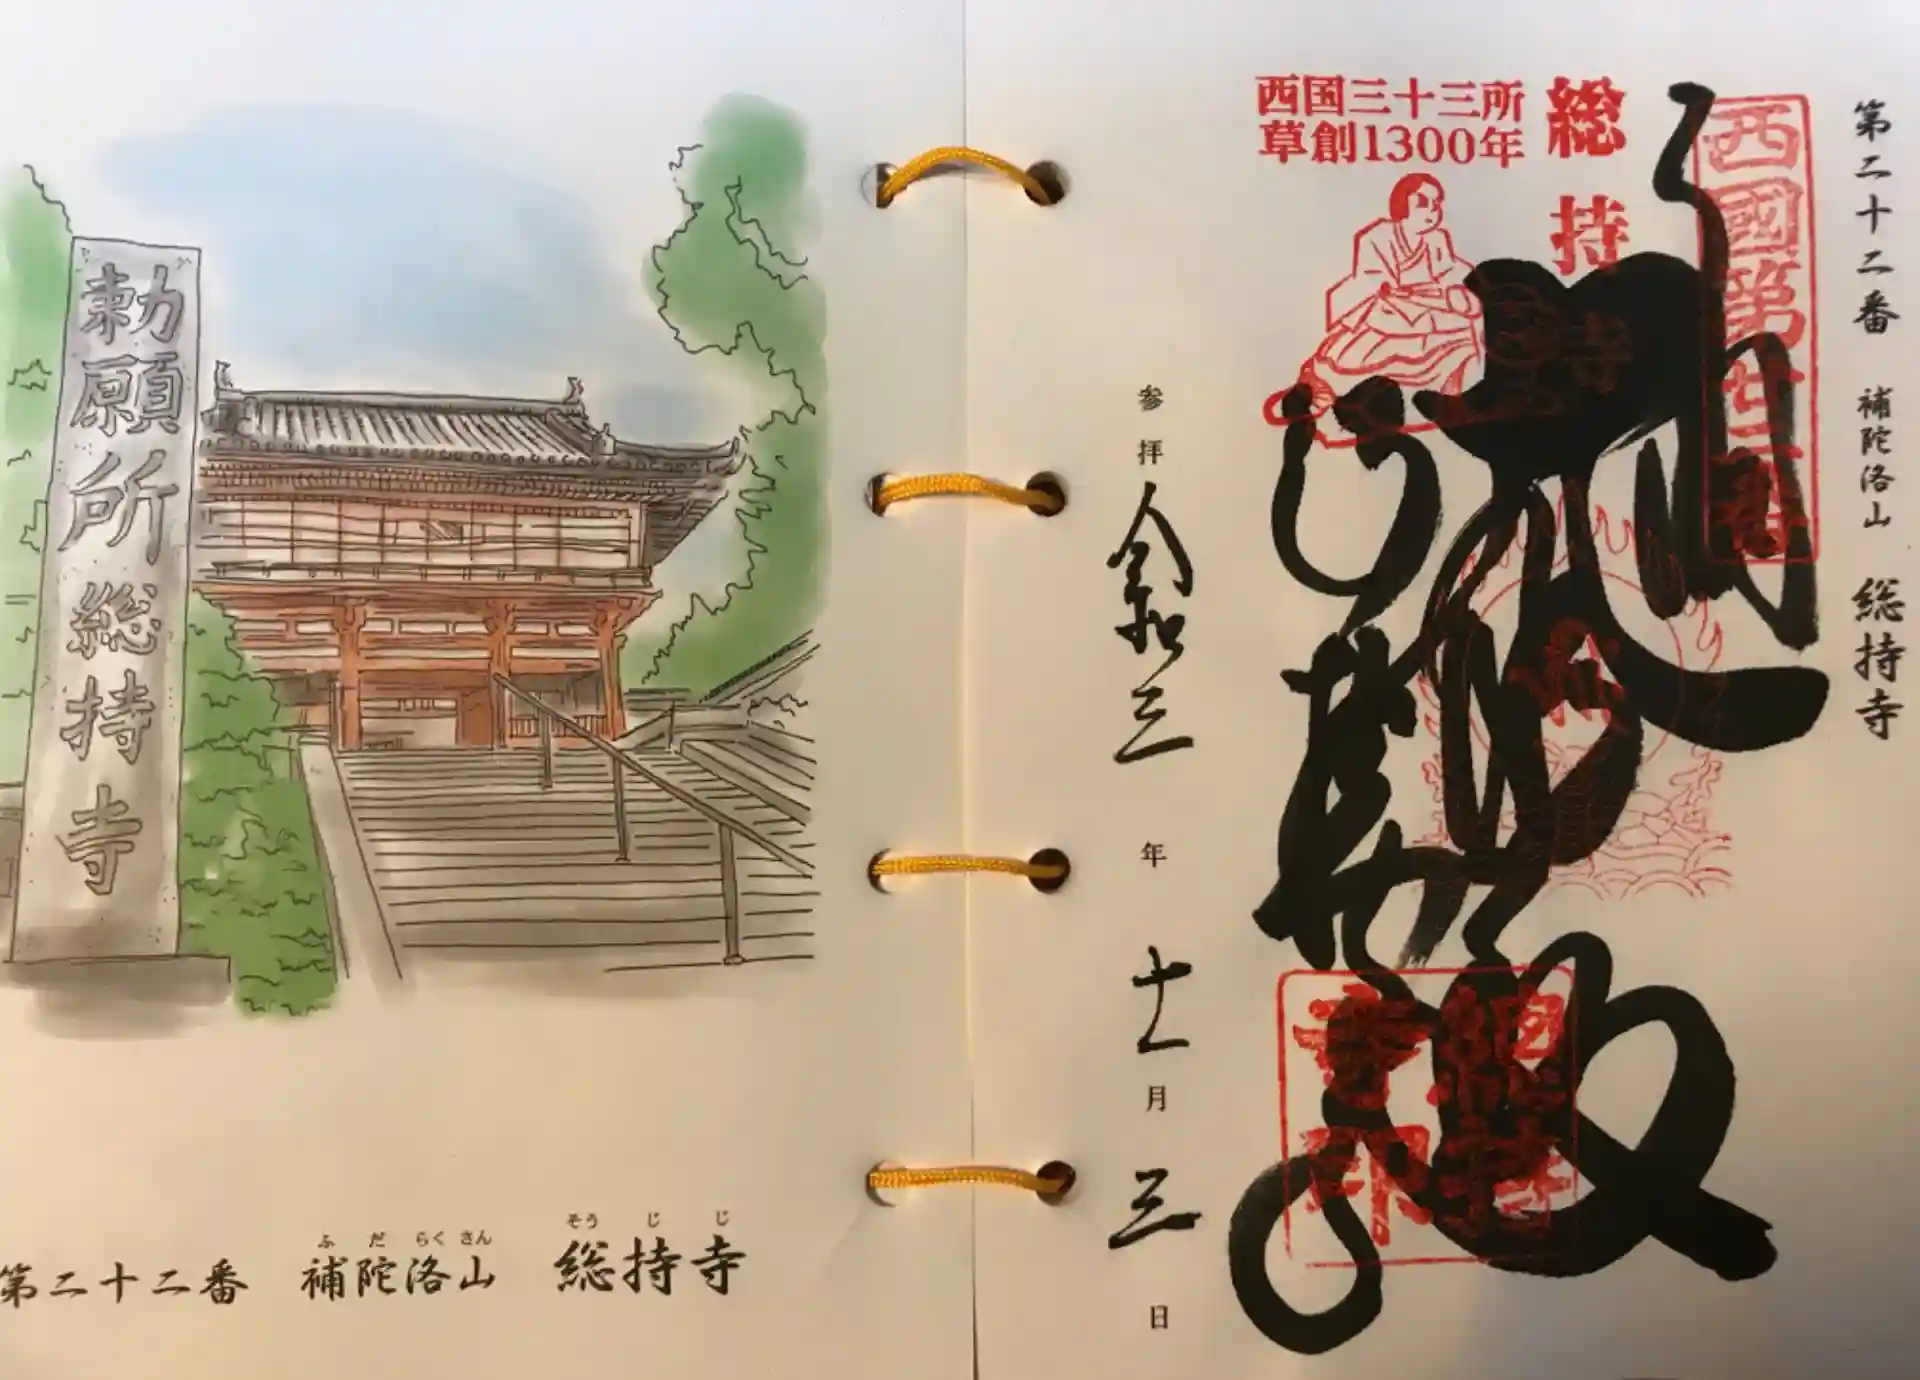 勅願所総持寺
第二十二番 補陀洛山 総持寺
ふだらくさん そうじじ
第二十二番 補陀洛山 総持寺
西國第廿二番
総持寺
西国三十三所
草創1300年
大悲殿
参拝 令和三年十一月三日